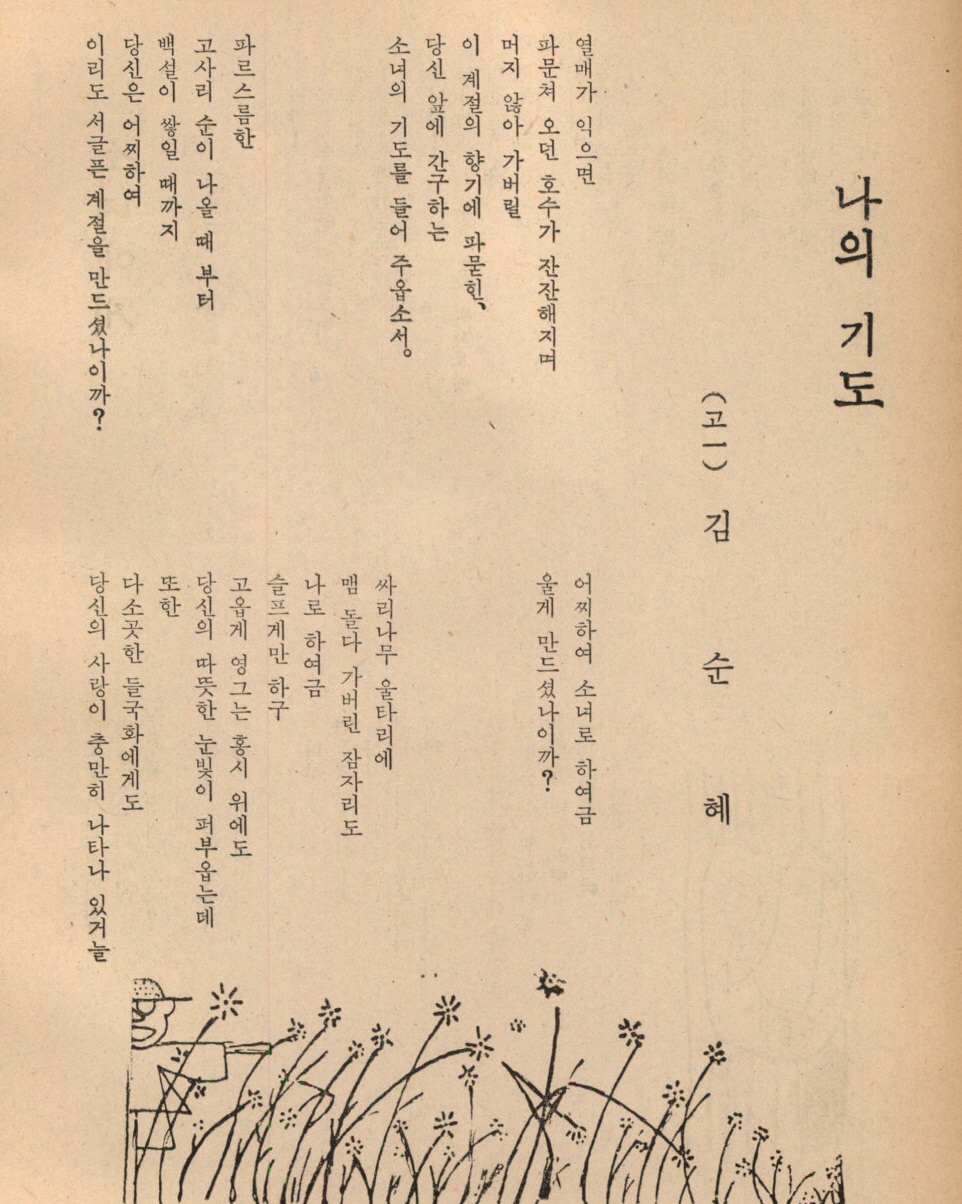 나의 기도
(고一) 김 순 혜
열매가 익으면
파문쳐 오던 호수가 잔잔해지며
머지 않아 가버릴
이 계절의 향기에 파묻힌,
당신 앞에 간구하는
소녀의 기도를 들어 주옵소서。
파르스름한
고사리 순이 나올 때 부터
백설이 쌓일 때까지
당신은 어찌하여
이리도 서글픈 계절을 만드셨나이까?
어찌하여 소녀로 하여금
울게 만드셨나이까?
싸리나무 울타리에
맴 돌다 가버린 잠자리도
나로 하여금
슬프게만 하구
고옵게 영그는 홍시 위에도
당신의 따뜻한 눈빛이 퍼부옵는데
또한
다소곳한 들국화에게도
당신의 사랑이 충만히 나타나 있거늘